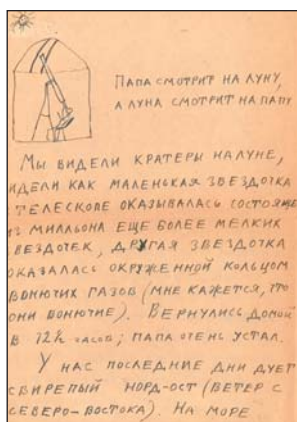 ПАПА СМОТРИТ НА ЛУНУ,
А ЛУНА СМОТРИТ НА ПАПУ
МЫ ВИДЕЛИ КРАТЕРЫ НА ЛУНЕ,
ИДЕЛИ КАК МАЛЕНЬКАЯ ЗВЕЗДОЧКА
ТЕЛЕСКОПЕ ОКАЗЫВАЛАСЬ СОСТОЯЩЕ
ИЗ МИЛЛЬОНА ЕЩЕ БОЛЕЕ МЕЛКИХ
ВЕЗДОЧЕК, ДРУГАЯ ЗВЕЗДОЧКА
ОКАЗАЛАСЬ ОКРУЖЕННОЙ КОЛЬЦОМ
ВОНЮЧИХ ГАЗОВ (МНЕ КАЖЕТСЯ, ЧТО
ОНИ ВОНЮЧИЕ). ВЕРНУЛИСЬ ДОМОЙ
В ЧАСОВ; ПАПА ОЧЕНЬ УСТАЛ.
У НАС ПОСЛЕДНИЕ ДНИ ДУЕТ
СВИРЕПЫЙ НОРД-ОСТ (ВЕТЕР С
СЕВЕРО-ВОСТОКА). НА МОРЕ